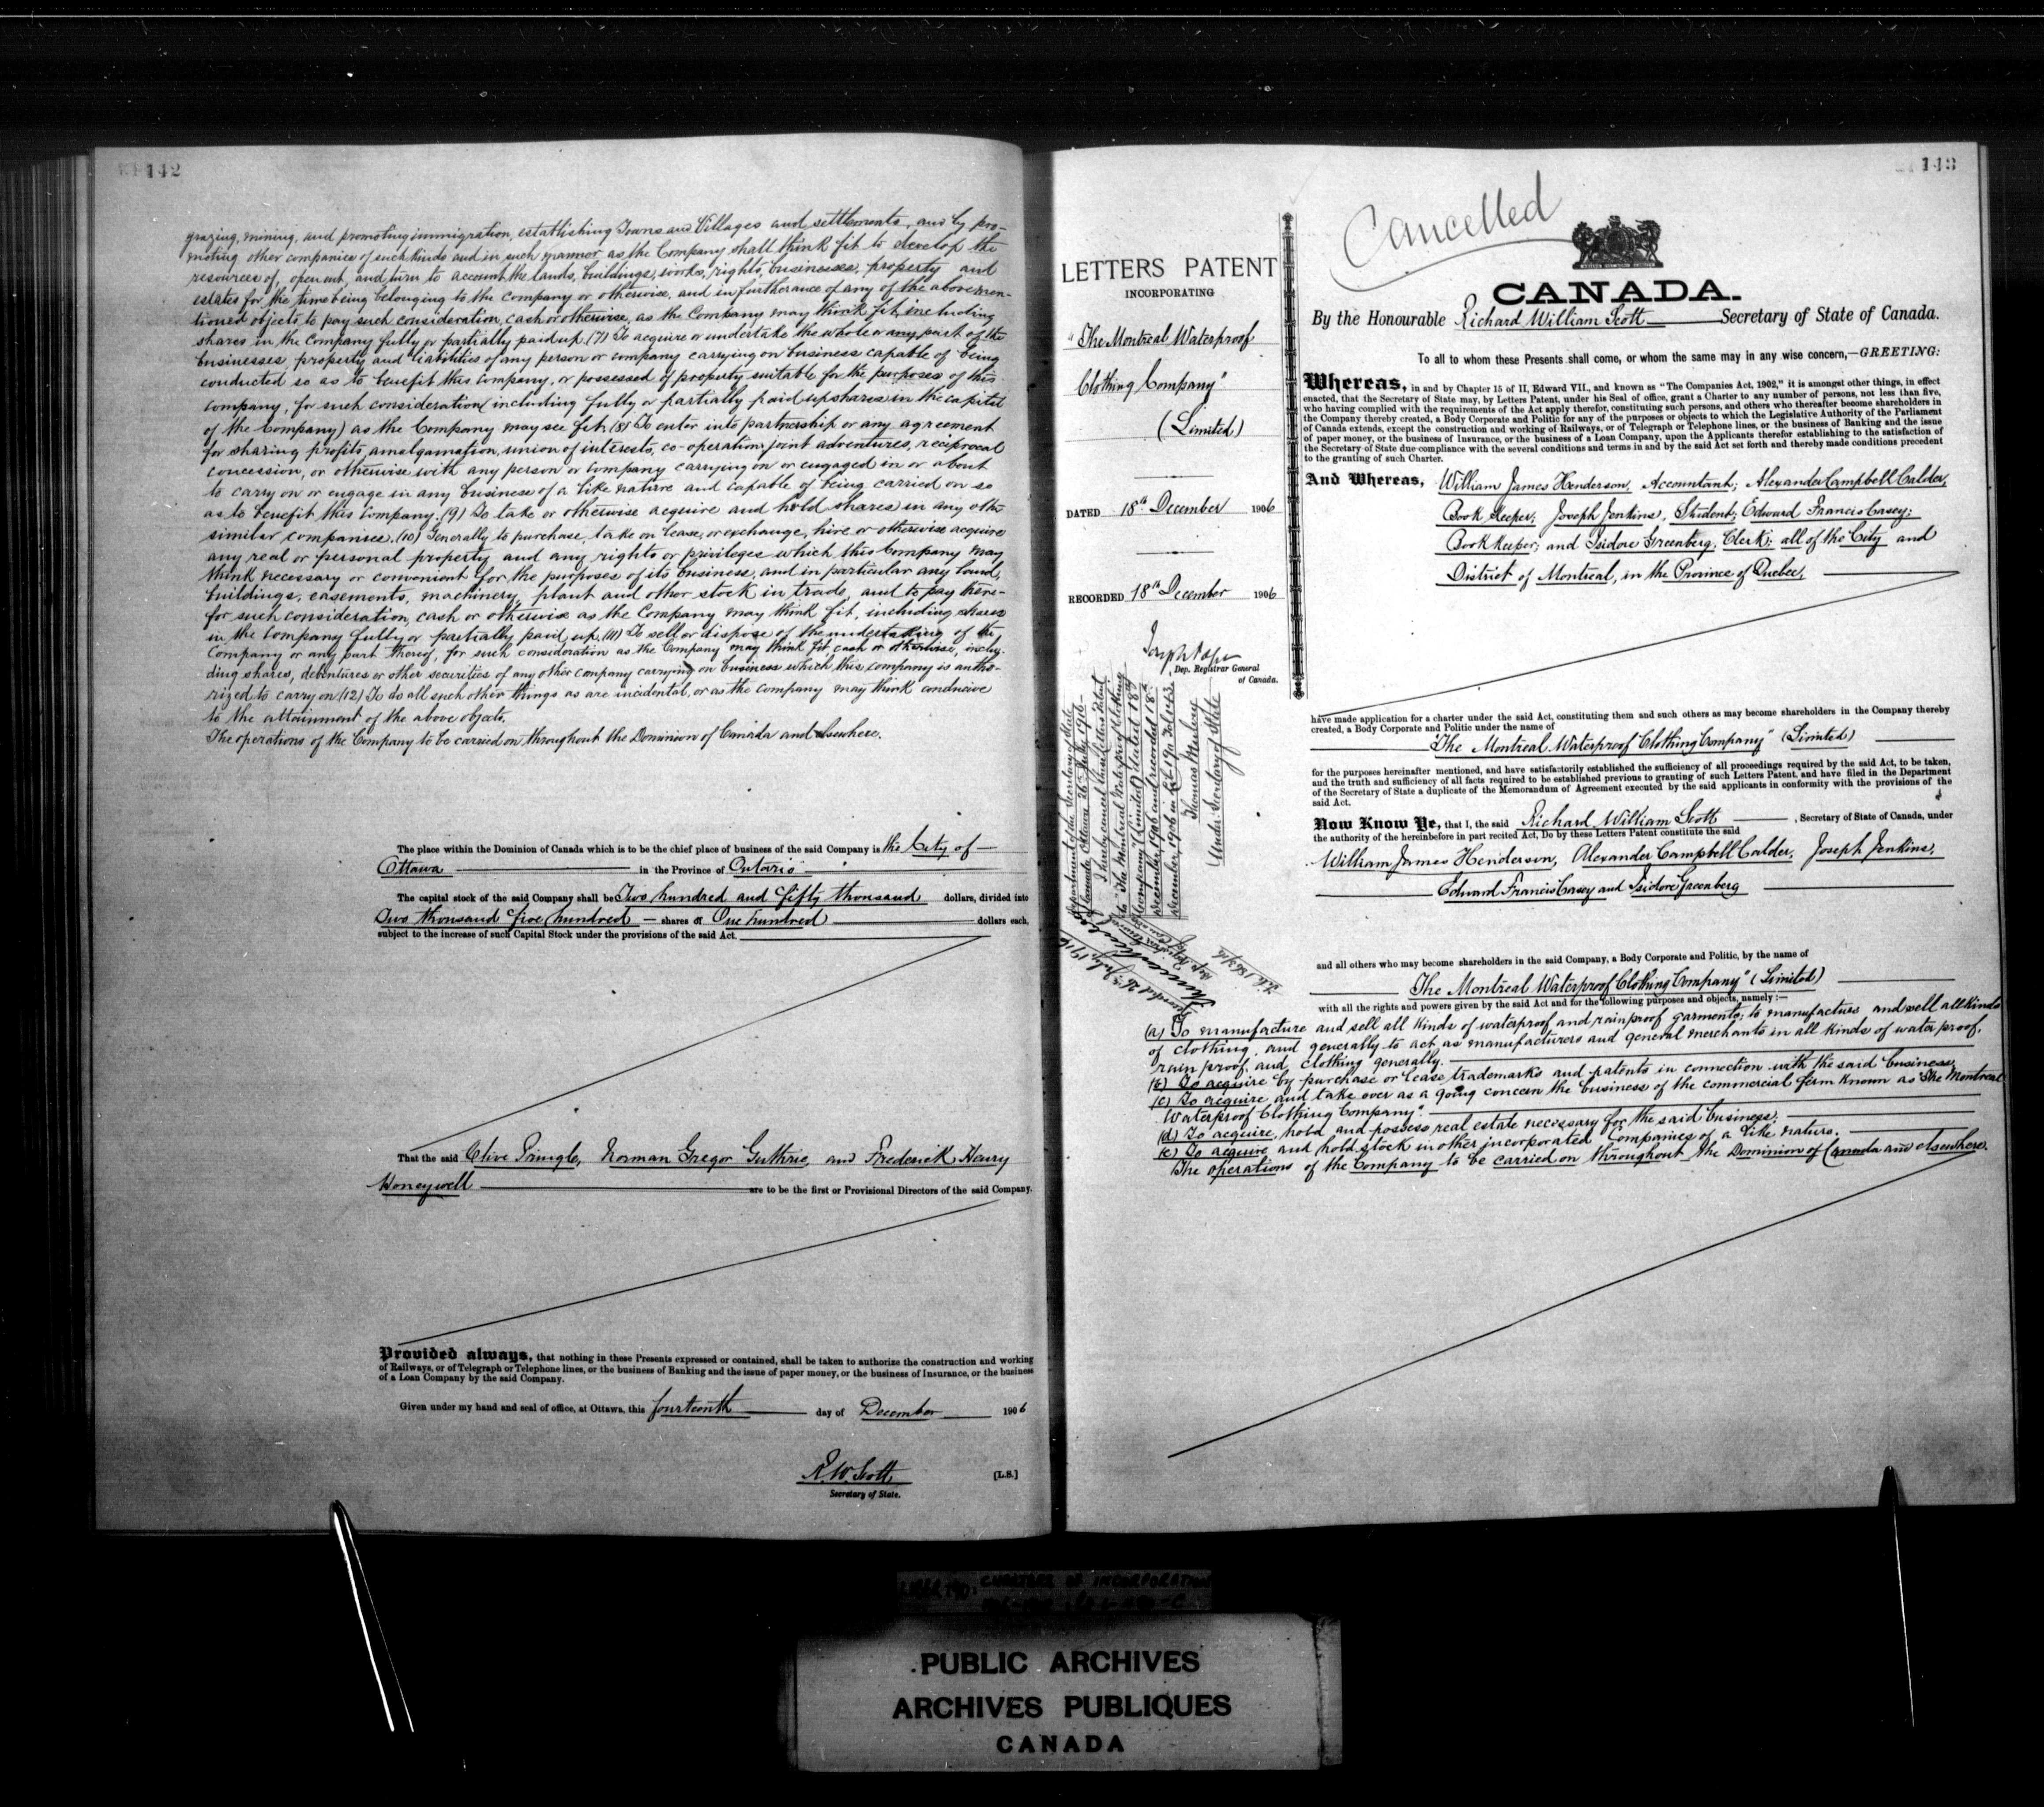 142
grazing, mining, and promoting immigration, establishing Towns and Villages and settlements, and by pro-
moting other companies of such kinds and in such manner as the Company shall think fit to develop the
resources of, open out, and turn to account the lands, buildings, works, rights, businesses, property and
estates for the time being belonging to the company or otherwise, and in furtherance of any of the abovemen-
tioned objects, to pay such consideration, cash or otherwise, as the Company may think fit, including
shares in the Company fully or partially paid up. (7) To acquire or undertake the whole or any part of the
businesses, property and liabilities of any person or company carrying on business capable of being
conducted so as to benefit this Company, or possessed of property suitable for the purposes of this
company, for such consideration (including fully or partially paid up shares in the capital
of the Company) as the Company may see fit. (8) To enter into partnership or any agreement
for sharing profits, amalgamation, union of interests, co-operation, joint adventures, reciprocal
concession, or otherwise with any person or company carrying on or engaged in or about
to carry on or engage in any business of a like nature and capable of being carried on so
as to benefit this Company. (9) To take or otherwise acquire and hold shares in any other
similar companies. (10) Generally to purchase, take on lease, or exchange, hire or otherwise acquire
any real or personal property and any rights or privileges which this Company may
think necessary or convenient for the purposes of its business, and in particular any land,
buildings, easements, machinery, plant and other stock in trade, and to pay there-
for such consideration, cash or otherwise as the Company may think fit, including shares
in the Company fully or partially paid up. (11) To sell or dispose of the undertaking of the
Company or any part thereof, for such consideration as the Company may think fit, cash or otherwise, inclu-
ding shares, debentures or other securities of any other company carrying on business which this company is autho-
rized to carry on (12) To do all such other things as are incidental, or as the company may think conducive
to the attainment of the above objects.
The operations of the Company to be carried on throughout the Dominion of Canada and elsewhere.
The place within the Dominion of Canada which is to be the chief place of business of the said Company is the City of
Ottawa in the Province of Ontario
The capital stock of the said Company shall be Two hundred and fifty thousand dollars, divided into
Two thousand five hundred shares of One hundred dollars each,
subject to the increase of such Capital Stock under the provisions of the said Act.
That the said Clive Pringle, Norman Gregor Guthrie, and Frederick Henry
Honeywell are to be the first or Provisional Directors of the said Company.
Provided always, that nothing in these Presents expressed or contained, shall be taken to authorize the construction and working
of Railways, or of Telegraph or Telephone lines, or the business of Banking and the issue of paper money, or the business of Insurance, or the business
of a Loan Company by the said Company.
Given under my hand and seal of office, at Ottawa, this fourteenth day of December 1906
R.W. Scott
[L.S.]
Secretary of State.
143
Cancelled
LETTERS PATENT
INCORPORATING
"The Montreal Waterproof
Clothing Company"
(Limited)
DATED 18th December 1906
RECORDED 18th December 1906
Joseph Pope
Dep. Registrar General
of Canada.
Department of the Secretary of State
of Canada, Ottawa, 26th July, 1916
I hereby cancel these letters Patent
to "The Montreal Waterproof Clothing
Company" (Limited) dated 18th
December, 1906 and recorded 18th
December, 1906 in Lib. 190 Folio 143.
Thomas Mulvey
Under Secretary of State
Recorded 26th July, 1916
CANADA.
By the Honourable Richard William Scott Secretary of State of Canada.
To all to whom these Presents shall come, or whom the same may in any wise concern,—GREETING:
Whereas, in and by Chapter 15 of II, Edward VII., and known as "The Companies Act, 1902," it is amongst other things, in effect
enacted, that the Secretary of State may, by Letters Patent, under his Seal of office, grant a Charter to any number of persons, not less than five,
who having complied with the requirements of the Act apply therefor, constituting such persons, and others who thereafter become shareholders in
the Company thereby created, a Body Corporate and Politic for any of the purposes or objects to which the Legislative Authority of the Parliament
of Canada extends, except the construction and working of Railways, or of Telegraph or Telephone lines, or the business of Banking and the issue
of paper money, or the business of Insurance, or the business of a Loan Company, upon the Applicants therefor establishing to the satisfaction of
the Secretary of State due compliance with the several conditions and terms in and by the said Act set forth and thereby made conditions precedent
to the granting of such Charter.
And Whereas, William James Henderson, Accountant; Alexander Campbell Calder,
Book Keeper; Joseph Jenkins, Student; Edward Francis Casey;
Book Keeper; and Isidore Greenberg, Clerk; all of the City and
District of Montreal, in the Province of Quebec,
have made application for a charter under the said Act, constituting them and such others as may become shareholders in the Company thereby
created, a Body Corporate and Politic under the name of
"The Montreal Waterproof Clothing Company" (Limited)
for the purposes hereinafter mentioned, and have satisfactorily established the sufficiency of all proceedings required by the said Act, to be taken,
and the truth and sufficiency of all facts required to be established previous to granting of such Letters Patent, and have filed in the Department
of the Secretary of State a duplicate of the Memorandum of Agreement executed by the said applicants in conformity with the provisions of the
said Act.
Now Know Ye, that I, the said Richard William Scott, Secretary of State of Canada, under
the authority of the hereinbefore in part recited Act, Do by these Letters Patent constitute the said
William James Henderson, Alexander Campbell Calder, Joseph Jenkins,
Edward Francis Casey and Isidore Greenberg
and all others who may become shareholders in the said Company, a Body Corporate and Politic, by the name of
The Montreal Waterproof Clothing Company" (Limited)
with all the rights and powers given by the said Act and for the following purposes and objects, namely :—
(a) To manufacture and sell all kinds of waterproof and rainproof garments; to manufacture and sell all kinds
of clothing, and generally to act as manufacturers and general merchants in all kinds of waterproof,
rain proof, and clothing generally.
(b) To acquire by purchase or lease trademarks and patents in connection with the said business,
(c) To acquire and take over as a going concern the business of the commercial firm known as "The Montreal
Waterproof Clothing Company".
(d) To acquire, hold and possess real estate necessary for the said business,
(e) To acquire and hold stock in other incorporated Companies of a like nature.
The operations of the Company to be carried on throughout the Dominion of Canada and elsewhere.
CHARTERS OF INCORPORATION
PUBLIC ARCHIVES
ARCHIVES PUBLIQUES
CANADA